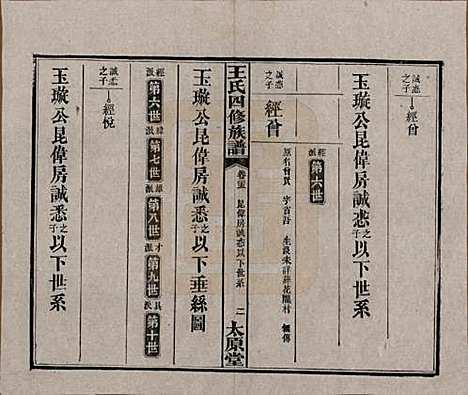 玉璇公昆偉房誠悫之子以下世系
誠悫之子 經曾
經派 第六世
誠悫之子 經曾
原名曾貫 字省吾 生没未詳葬花隴村 續傳
王氏四修族譜
卷三 昆偉房誠悫以下世系 二 太原堂
玉璇公昆偉房誠悉之子以下垂絲圖
經派 第六世 緯派 第七世 雄派 第八世 才派 第九世 具派 第十世
誠悉之子 經悅
玉璇公昆偉房誠悉之子以下世系